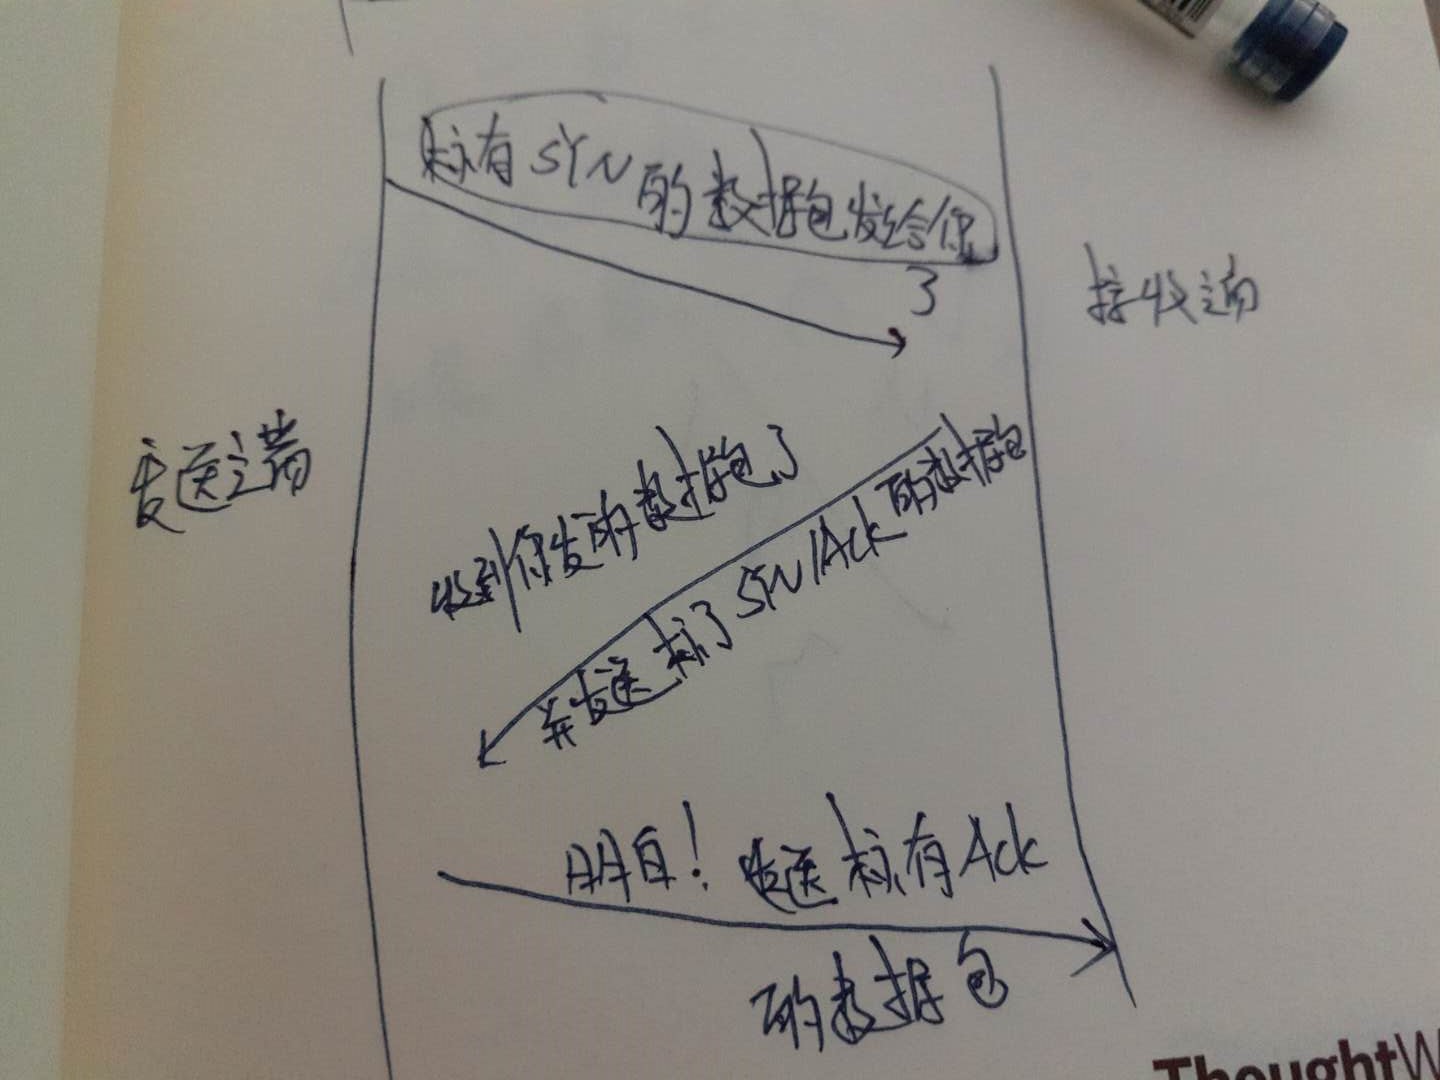 标有SYN的数据包发给你
了
接收端
发送端
收到你发的数据包了
并发送标了SYN/Ack的数据包
明白！发送标有Ack
的数据包
ThoughtW